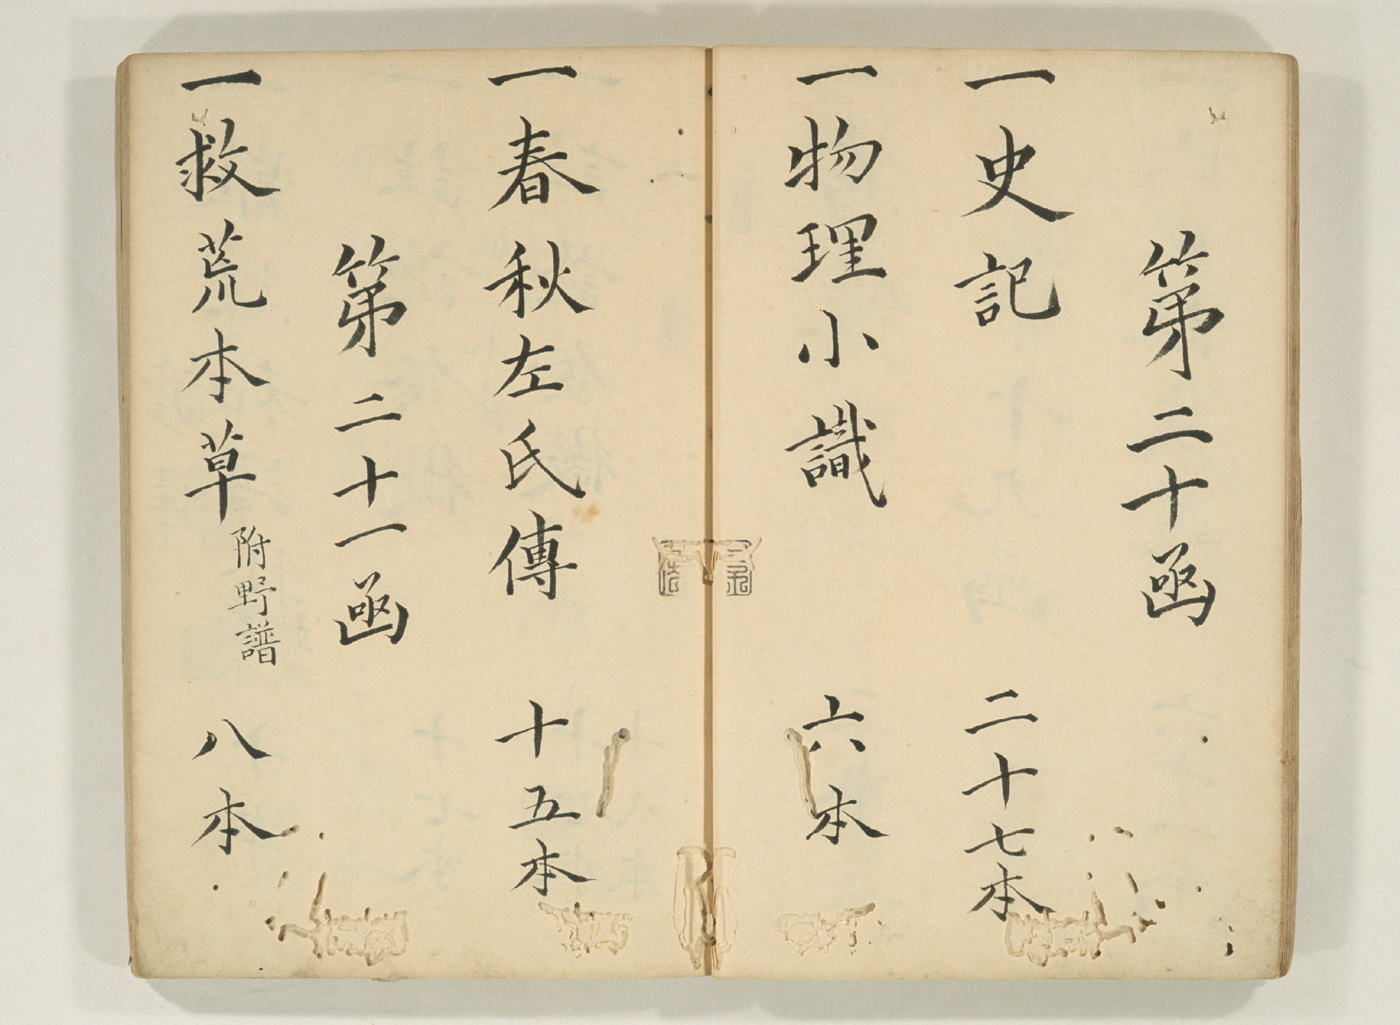 第二十函
一史記 二十七本
一物理小識 六本
一春秋左氏傳 十五本
第二十一函
一救荒本草附野譜 八本